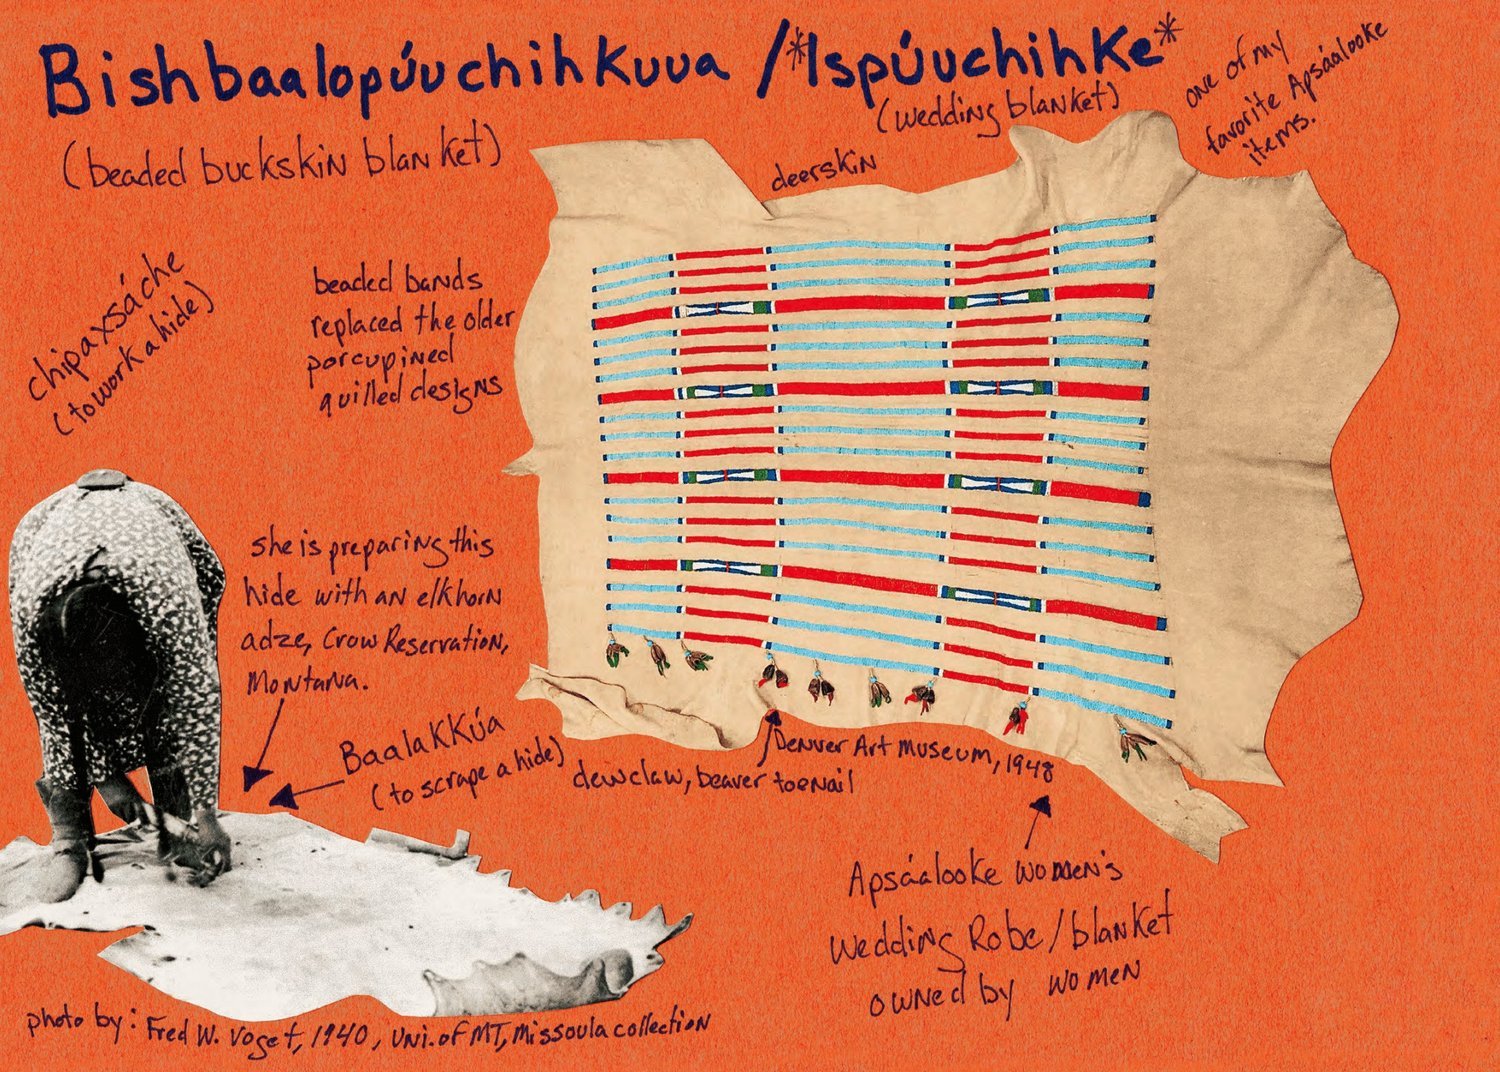 Bishbaalopúuchihkuua /*Ispúuchihke*
(beaded buckskin blanket)
(wedding blanket)
one of my
favorite Apsáalooke
items.
deerskin
chipaxsáche
(to work a hide)
beaded bands
replaced the older
porcupined
quilled designs
she is preparing this
hide with an elkhorn
adze, Crow Reservation,
Montana.
Baalakkúa
(to scrape a hide)
Denver Art museum, 1948
dewclaw, beaver toenail
Apsáalooke women's
wedding Robe/blanket
owned by women
photo by: Fred W. Voget, 1940, Uni. of MT, Missoula collection